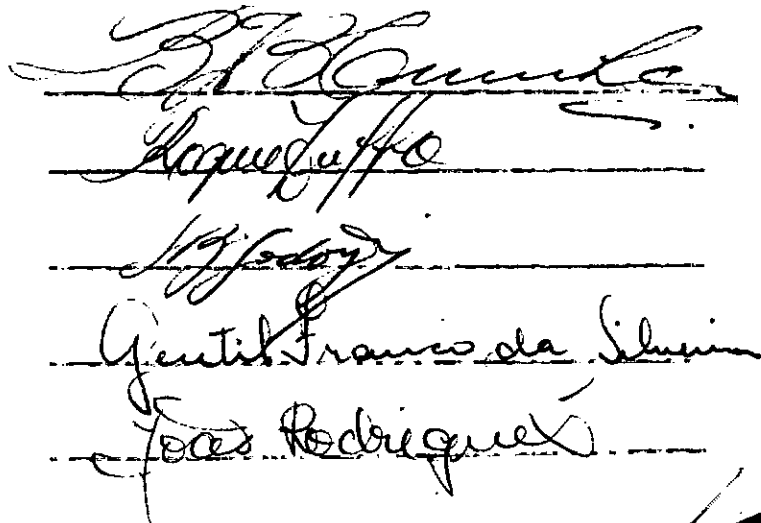 Roque Zuffo
JB Godoy
Gentil Franco da Silveira
João Rodrigues